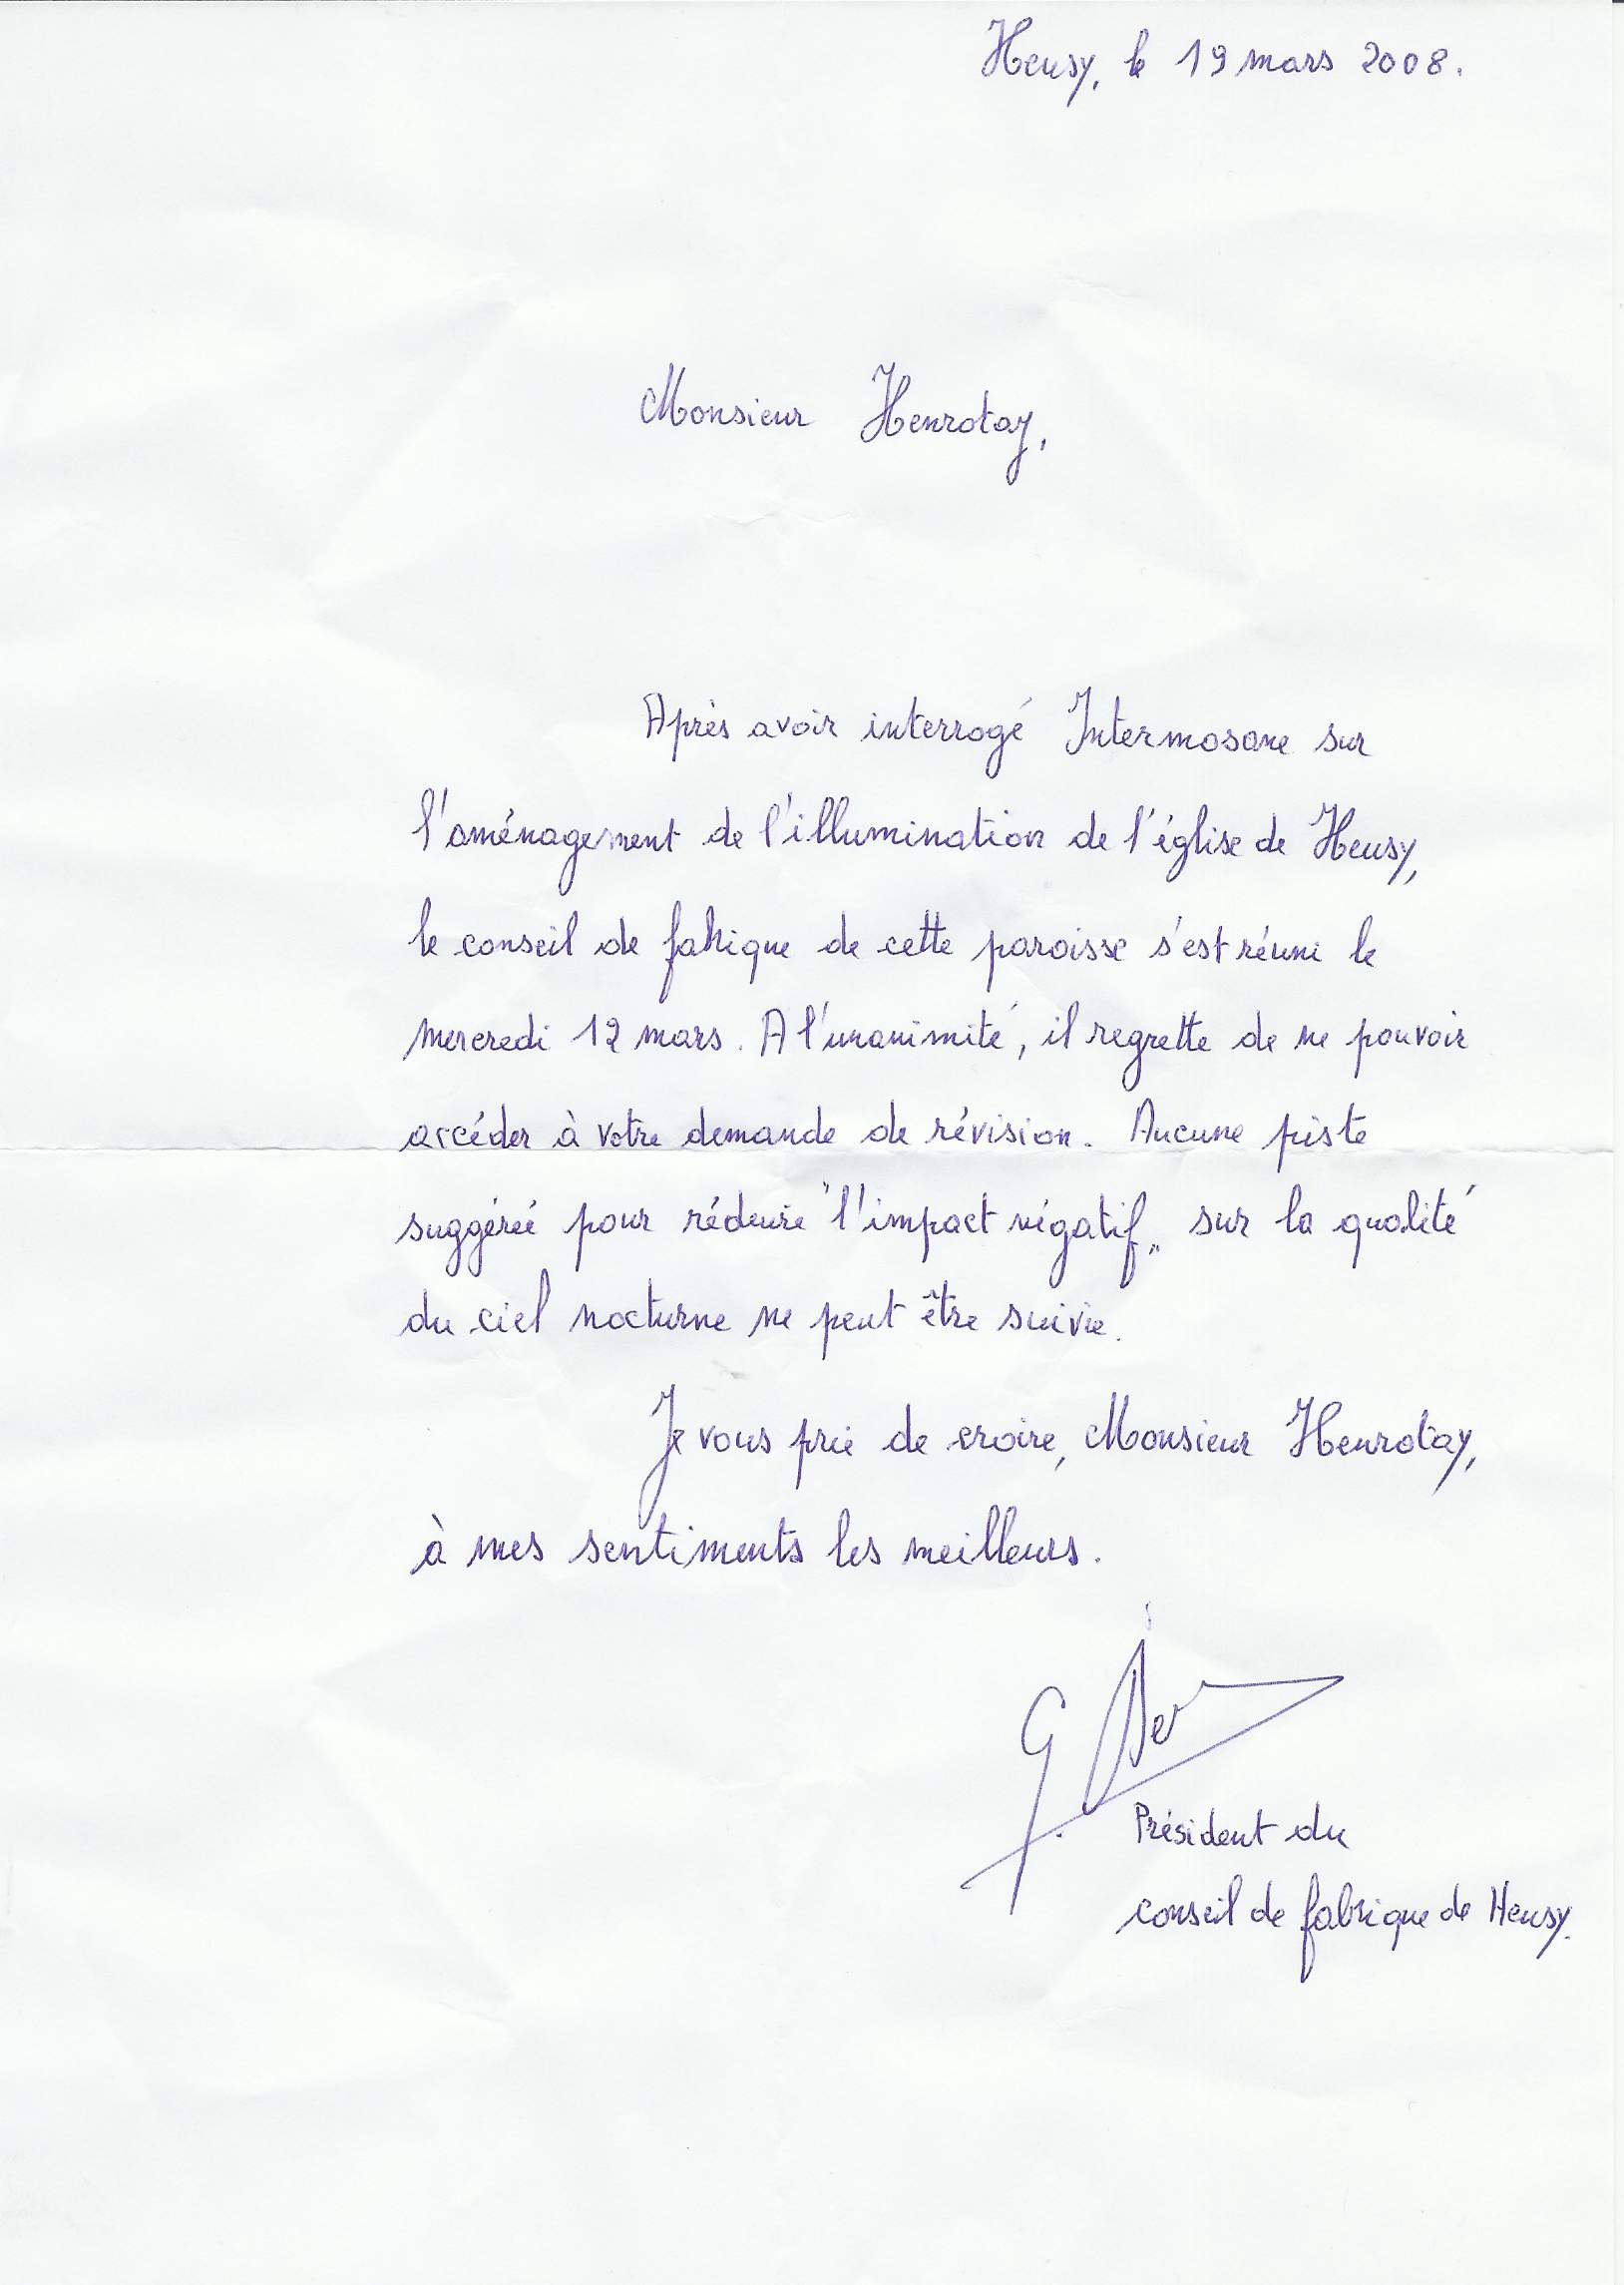 Heusy, le 19 mars 2008.
Monsieur Henrotay,
Après avoir interrogé Intermosane sur
l'aménagement de l'illumination de l'église de Heusy,
le conseil de fabrique de cette paroisse s'est réuni le
mercredi 12 mars. A l'unanimité, il regrette de ne pouvoir
accéder à votre demande de révision. Aucune piste
suggérée pour réduire "l'impact négatif" sur la qualité
du ciel nocturne ne peut être suivie.
Je vous prie de croire, Monsieur Henrotay,
à mes sentiments les meilleurs.
G.
Président du
conseil de fabrique de Heusy.